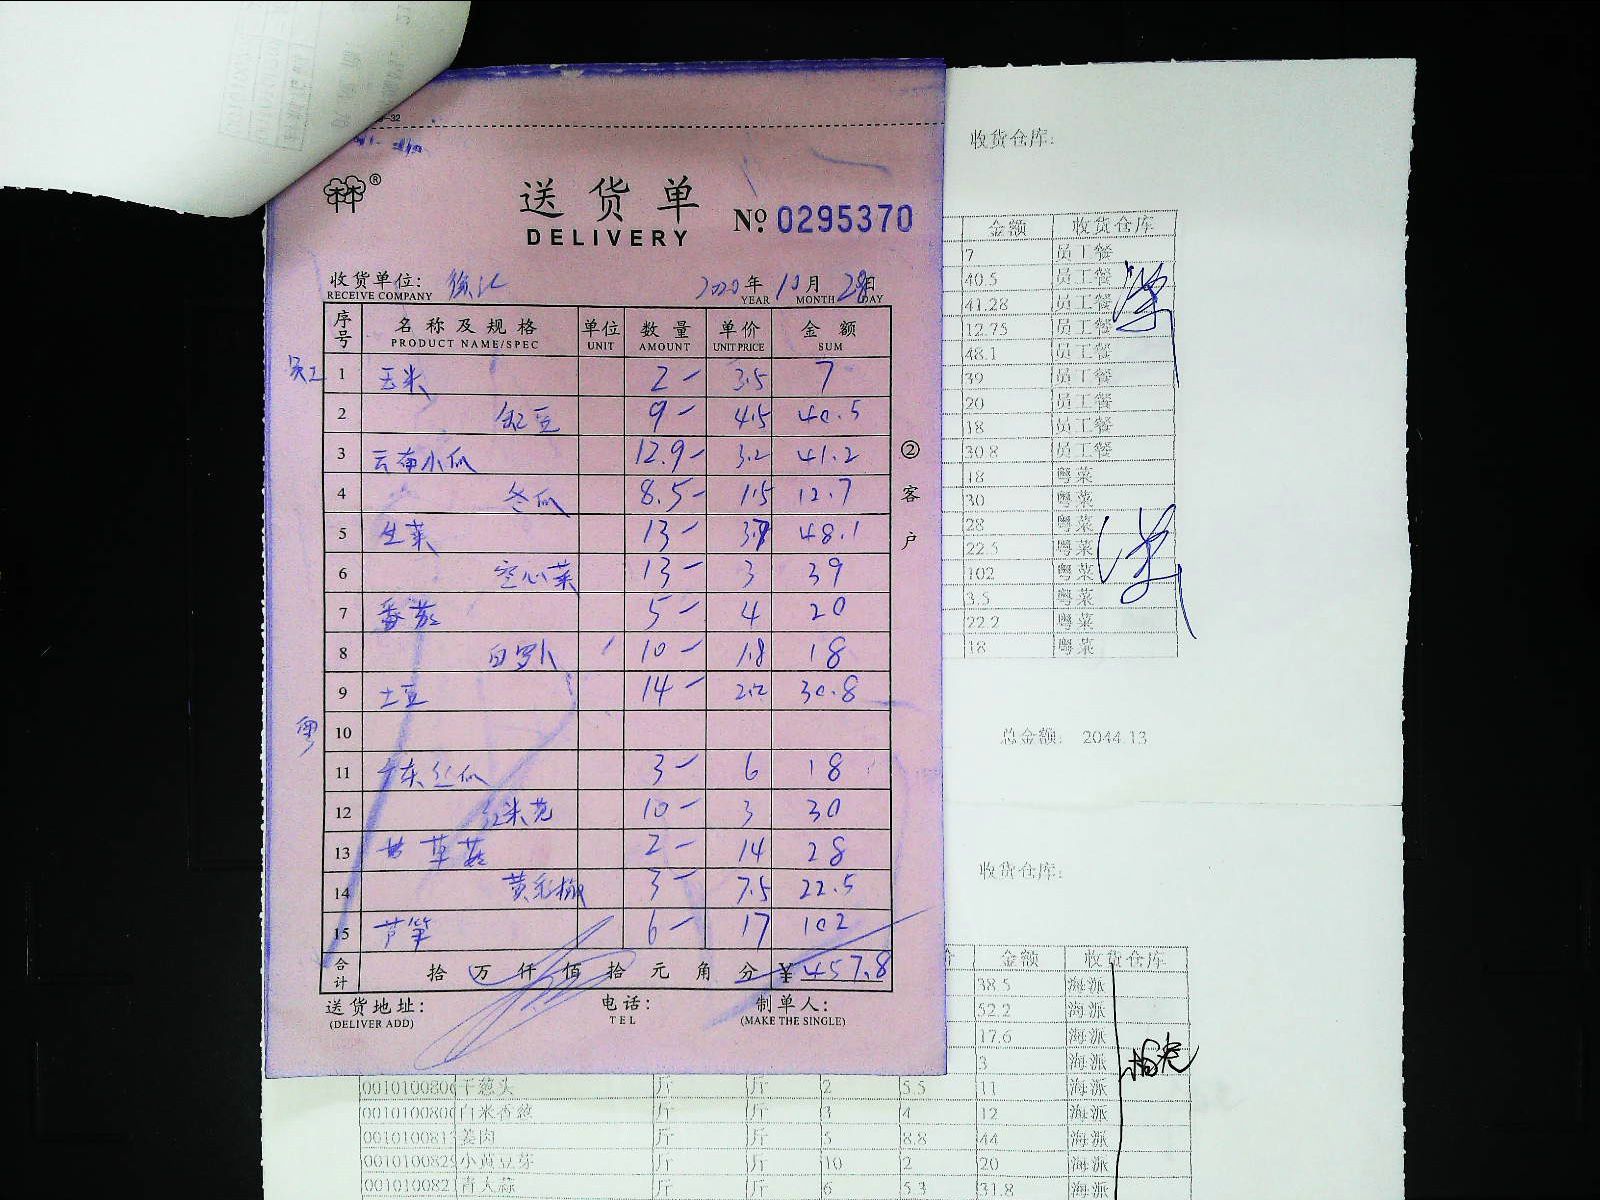 送货单
DELIVERY
№ 0295370
收货单位: 徐汇 2020年10月28日
RECEIVE COMPANY YEAR MONTH DAY
序号 名称及规格 单位 数量 单价 金额
PRODUCT NAME/SPEC UNIT AMOUNT UNIT PRICE SUM
员工 1 玉米 2 3.5 7
2 豇豆 9 4.5 40.5
3 云南小瓜 12.9 3.2 41.2
4 冬瓜 8.5 1.5 12.7
5 生菜 13 3.7 48.1
6 空心菜 13 3 39
7 番茄 5 4 20
8 白罗卜 10 1.8 18
9 土豆 14 2.2 30.8
粤 10
11 丝瓜 3 6 18
12 红米苋 10 3 30
13 草菇 2 14 28
14 黄毛椒 3 7.5 22.5
15 芦笋 6 17 102
合计 拾万仟佰拾元角分 ¥457.8
送货地址: 电话: 制单人:
(DELIVER ADD) TEL (MAKE THE SINGLE)
②客户
收货仓库:
金额 收货仓库
7 员工餐
40.5 员工餐
41.28 员工餐
12.75 员工餐
48.1 员工餐
39 员工餐
20 员工餐
18 员工餐
30.8 员工餐
18 粤菜
30 粤菜
28 粤菜
22.5 粤菜
102 粤菜
3.5 粤菜
22.2 粤菜
18 粤菜
总金额: 2044.13
收货仓库:
金额 收货仓库
38.5 海派
52.2 海派
17.6 海派
3 海派
干葱头 斤 斤 2 5.5 11 海派
白米香葱 斤 斤 3 4 12 海派
姜肉 斤 斤 5 8.8 44 海派
小黄豆芽 斤 斤 10 2 20 海派
青大蒜 斤 斤 6 5.3 31.8 海派